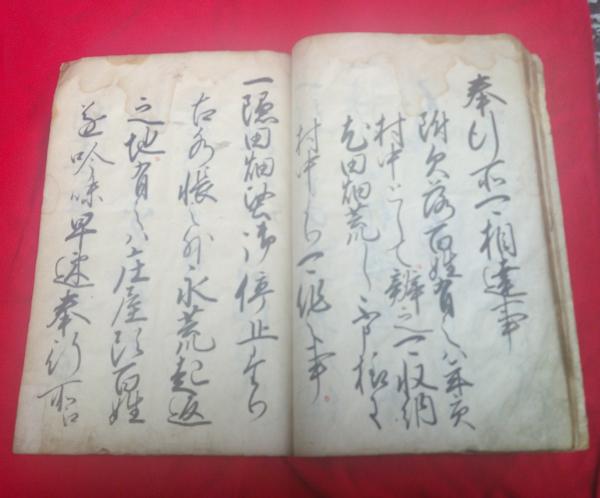 奉行所可相達事
附欠落百姓有之ハ年貢
村中として辨之可収納
尤田畑荒し不申様ニ
村中ゟ可作之事
一隠田畑堅御停止たり
古水帳之外永荒起返
之地有之ハ庄屋頭百姓
遂吟味早速奉行所